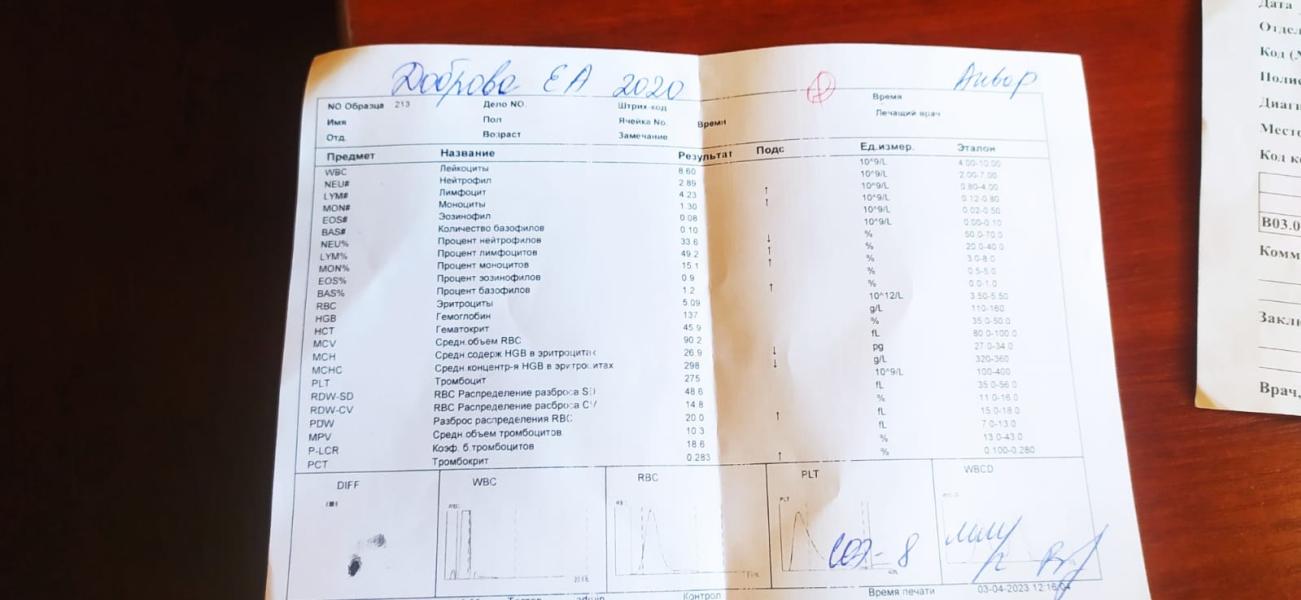 Доброва ЕА 2020 Анвар
NO Образца 213 Дело NO. Штрих-код Время
Имя Пол Ячейка No. Время Лечащий врач
Отд. Возраст Замечание
Предмет Название Результат Подс Ед.измер. Эталон
WBC Лейкоциты 8.60 10^9/L 4.00-10.00
NEU# Нейтрофил 2.89 10^9/L 2.00-7.00
LYM# Лимфоцит 4.23 ↑ 10^9/L 0.80-4.00
MON# Моноциты 1.30 ↑ 10^9/L 0.12-0.80
EOS# Эозинофил 0.08 10^9/L 0.02-0.50
BAS# Количество базофилов 0.10 10^9/L 0.00-0.10
NEU% Процент нейтрофилов 33.6 ↓ % 50.0-70.0
LYM% Процент лимфоцитов 49.2 ↑ % 20.0-40.0
MON% Процент моноцитов 15.1 ↑ % 3.0-8.0
EOS% Процент эозинофилов 0.9 % 0.5-5.0
BAS% Процент базофилов 1.2 ↑ % 0.0-1.0
RBC Эритроциты 5.09 10^12/L 3.50-5.50
HGB Гемоглобин 137 g/L 110-160
HCT Гематокрит 45.9 % 35.0-50.0
MCV Средн.объем RBC 90.2 fL 80.0-100.0
MCH Средн.содерж HGB в эритроцитах 26.9 ↓ pg 27.0-34.0
MCHC Средн.концентр-я HGB в эритроцитах 298 ↓ g/L 320-360
PLT Тромбоцит 275 10^9/L 100-400
RDW-SD RBC Распределение разброса SD 48.6 fL 35.0-56.0
RDW-CV RBC Распределение расброса CV 14.8 % 11.0-16.0
PDW Разброс распределения RBC 20.0 ↑ fL 15.0-18.0
MPV Средн.объем тромбоцитов 10.3 fL 7.0-13.0
P-LCR Коэф. б.тромбоцитов 18.6 % 13.0-43.0
PCT Тромбокрит 0.283 ↑ % 0.100-0.280
DIFF WBC RBC PLT WBCD
WBC PLT
СОЭ - 8
Контрол Время печати 03-04-2023 12:16:04
Дата
Код (
Диаг
Мест
Код к
B03.0
Комм
Закл
Врач,